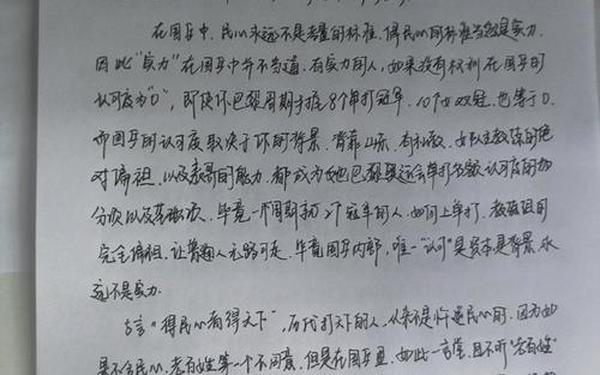 在国乒中，民心永远不是考量的标准，得民心的标准当然是实力，
因此“实力”在国乒中并不当道，有实力的人，如果没有权利在国乒的
认可度为“0”，即使你巴黎周期拿8个单打冠军，10个女双冠，也等于0，
而国乒的认可度取决于你的背景，背靠山东，有利教，女队主教练的绝
对偏袒，以及表哥的能力，都成为她巴黎奥运会单打名额认可度的加
分项以及基础项，毕竟一个周期初2个冠军的人，如何上单打，教练组的
完全偏袒，让普通人无路可走，毕竟国乒内部，唯一“认可”是资本是背景，永
远不是实力.
古言“得民心者得天下”，历代打天下的人，从来不是忤逆民心的，因为如
果不合民心，老百姓第一个不同意，但是在国乒里，如此一言堂，且不听“老百姓”